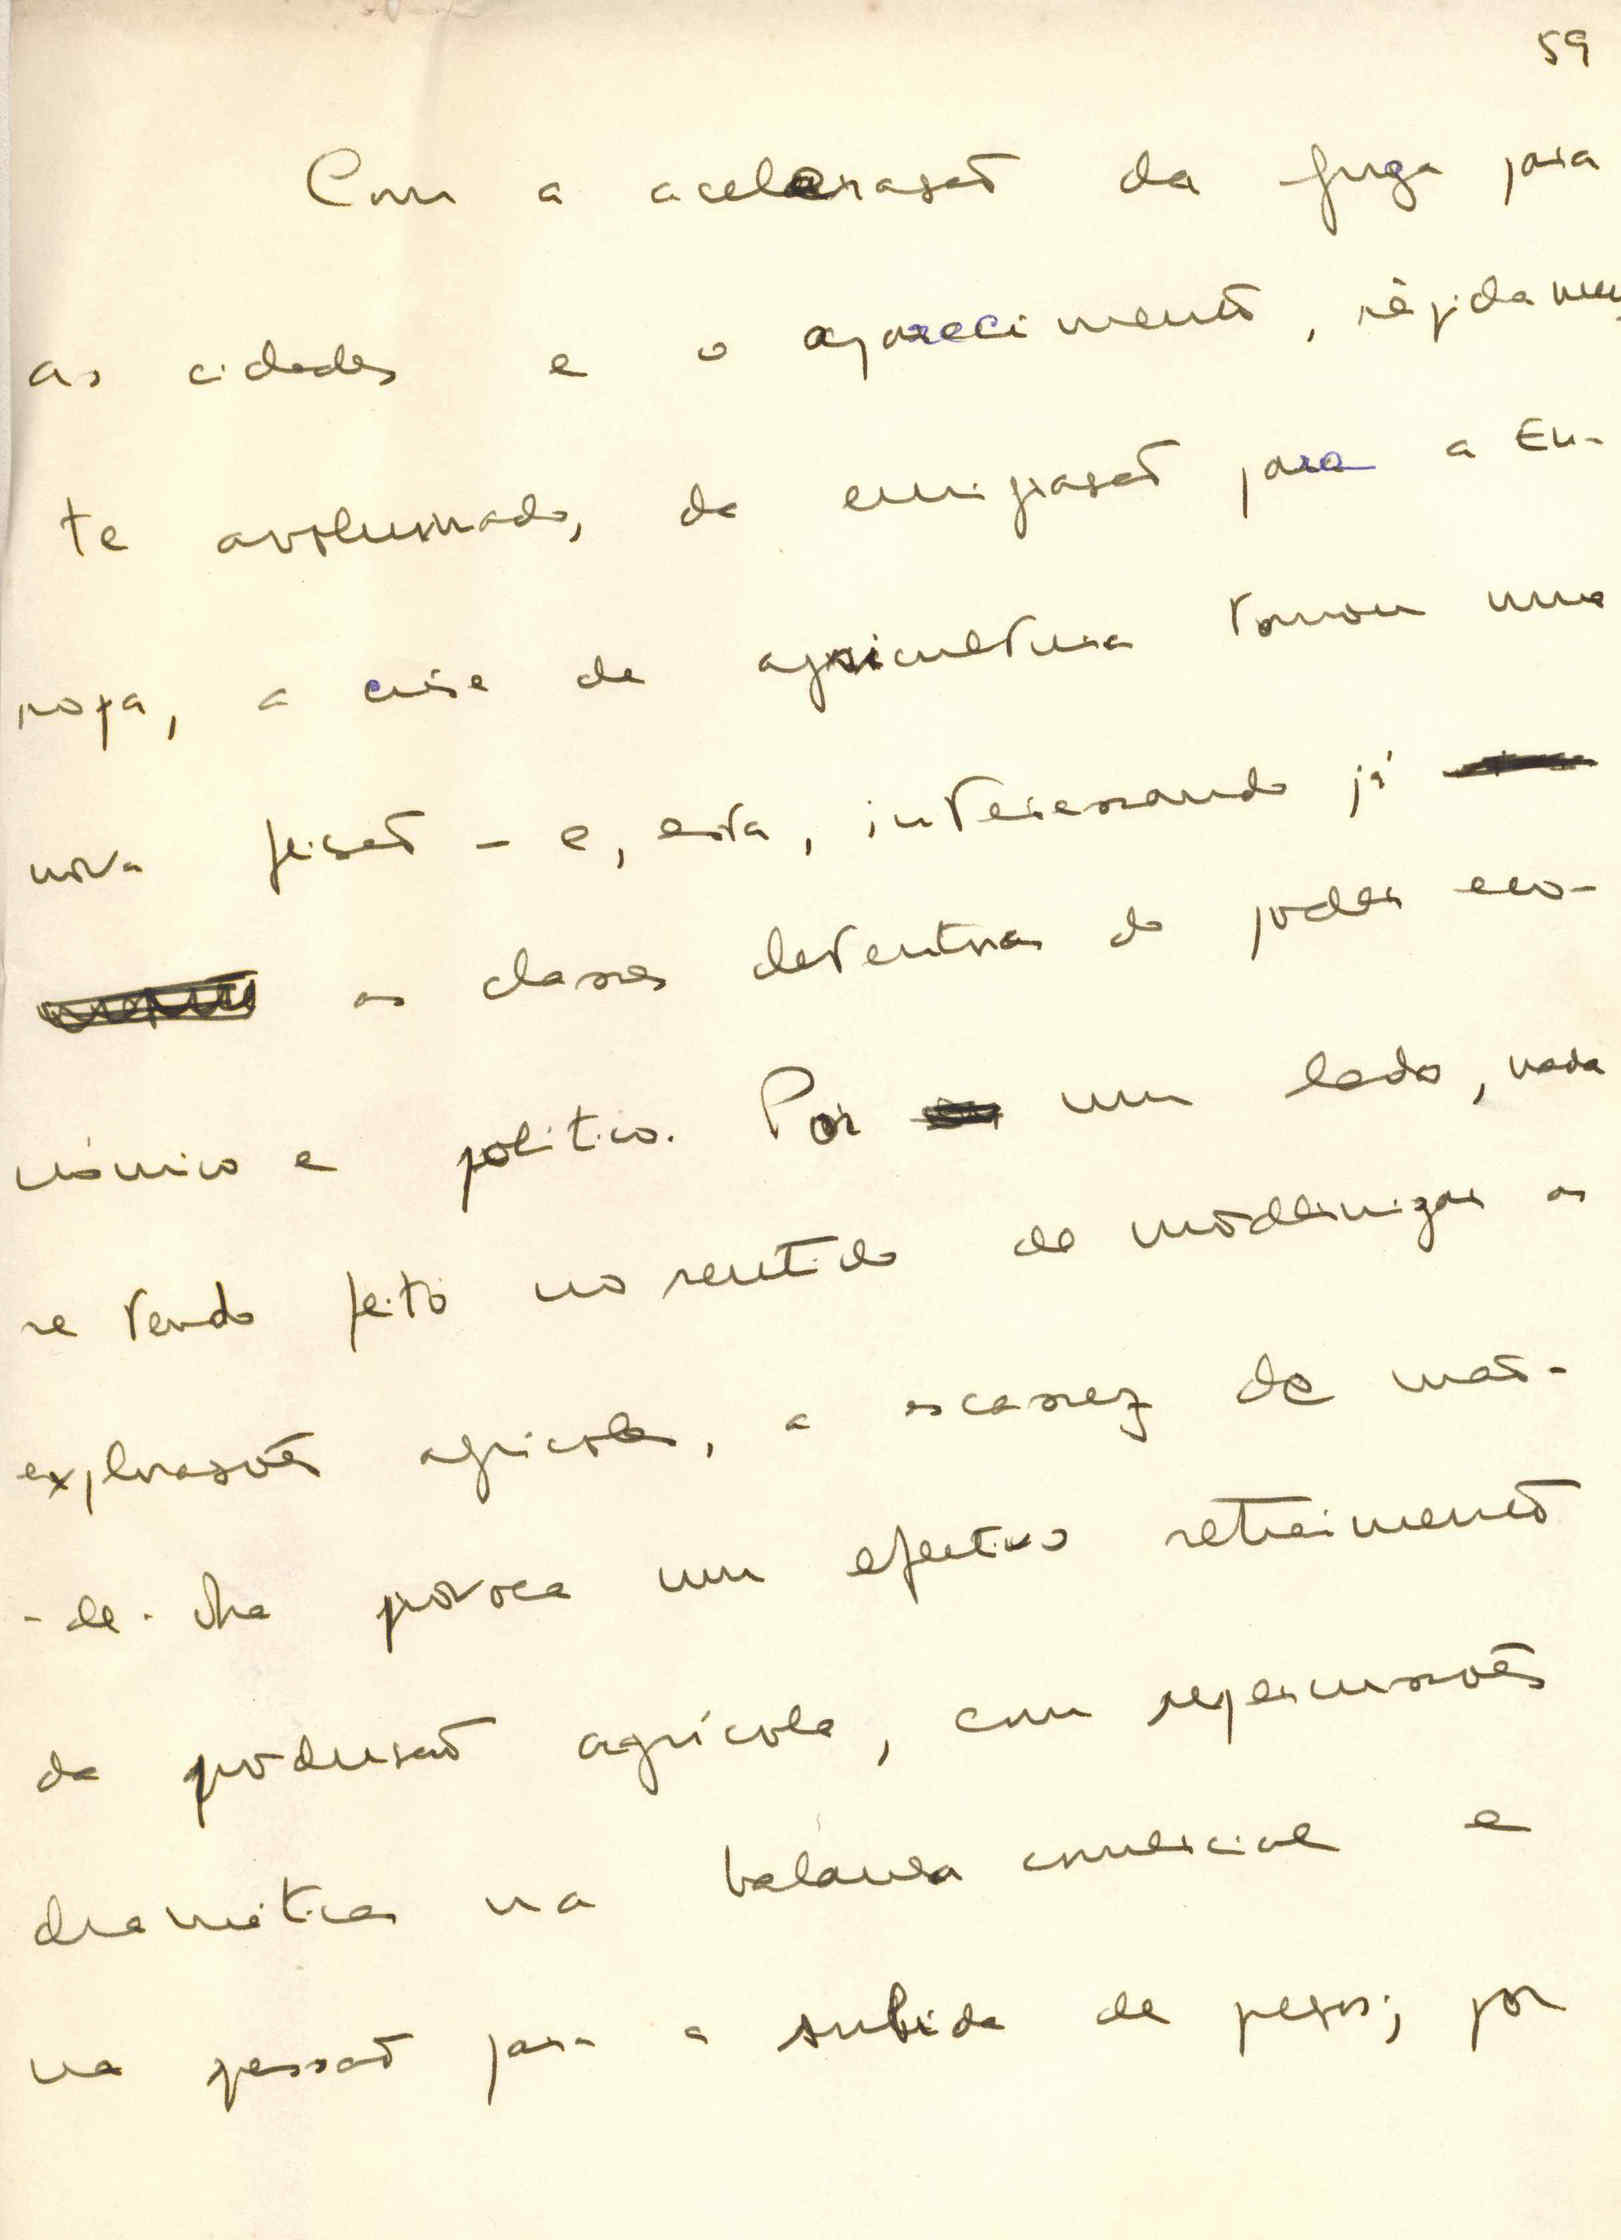 59
Com a aceleração da fuga para
as cidades e o aparecimento, ràpidamen
te avolumado, da emigração para a Eu-
ropa, a crise da agricultura tomou uma
nova feição - e, esta, interessando já
as classes detentoras do poder eco-
nómico e político. Por um lado, nada
se tendo feito no sentido de modernizar as
explorações agrícolas, a escassez de mão-
-de-obra provoca um efectivo retraimento
da produção agrícola, com repercussões
dramáticas na balança comercial e
na pressão para a subida de preços; por